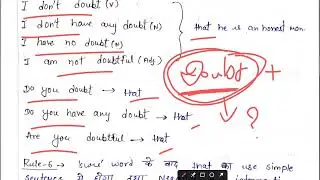 I don't doubt (V)
I don't have any doubt (N)
I have no doubt (N)
I am not doubtful (Adj)
that he is an honest man.
Doubt +
?
Do you doubt → that
Do you have any doubt → that
Are you doubtful → that
Rule-6 → 'Sure' word के बाद that का use simple
sentence में होगा तथा